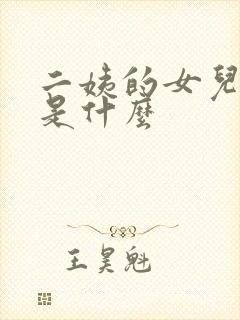 二姨的女兒
是什麼
王昊魁